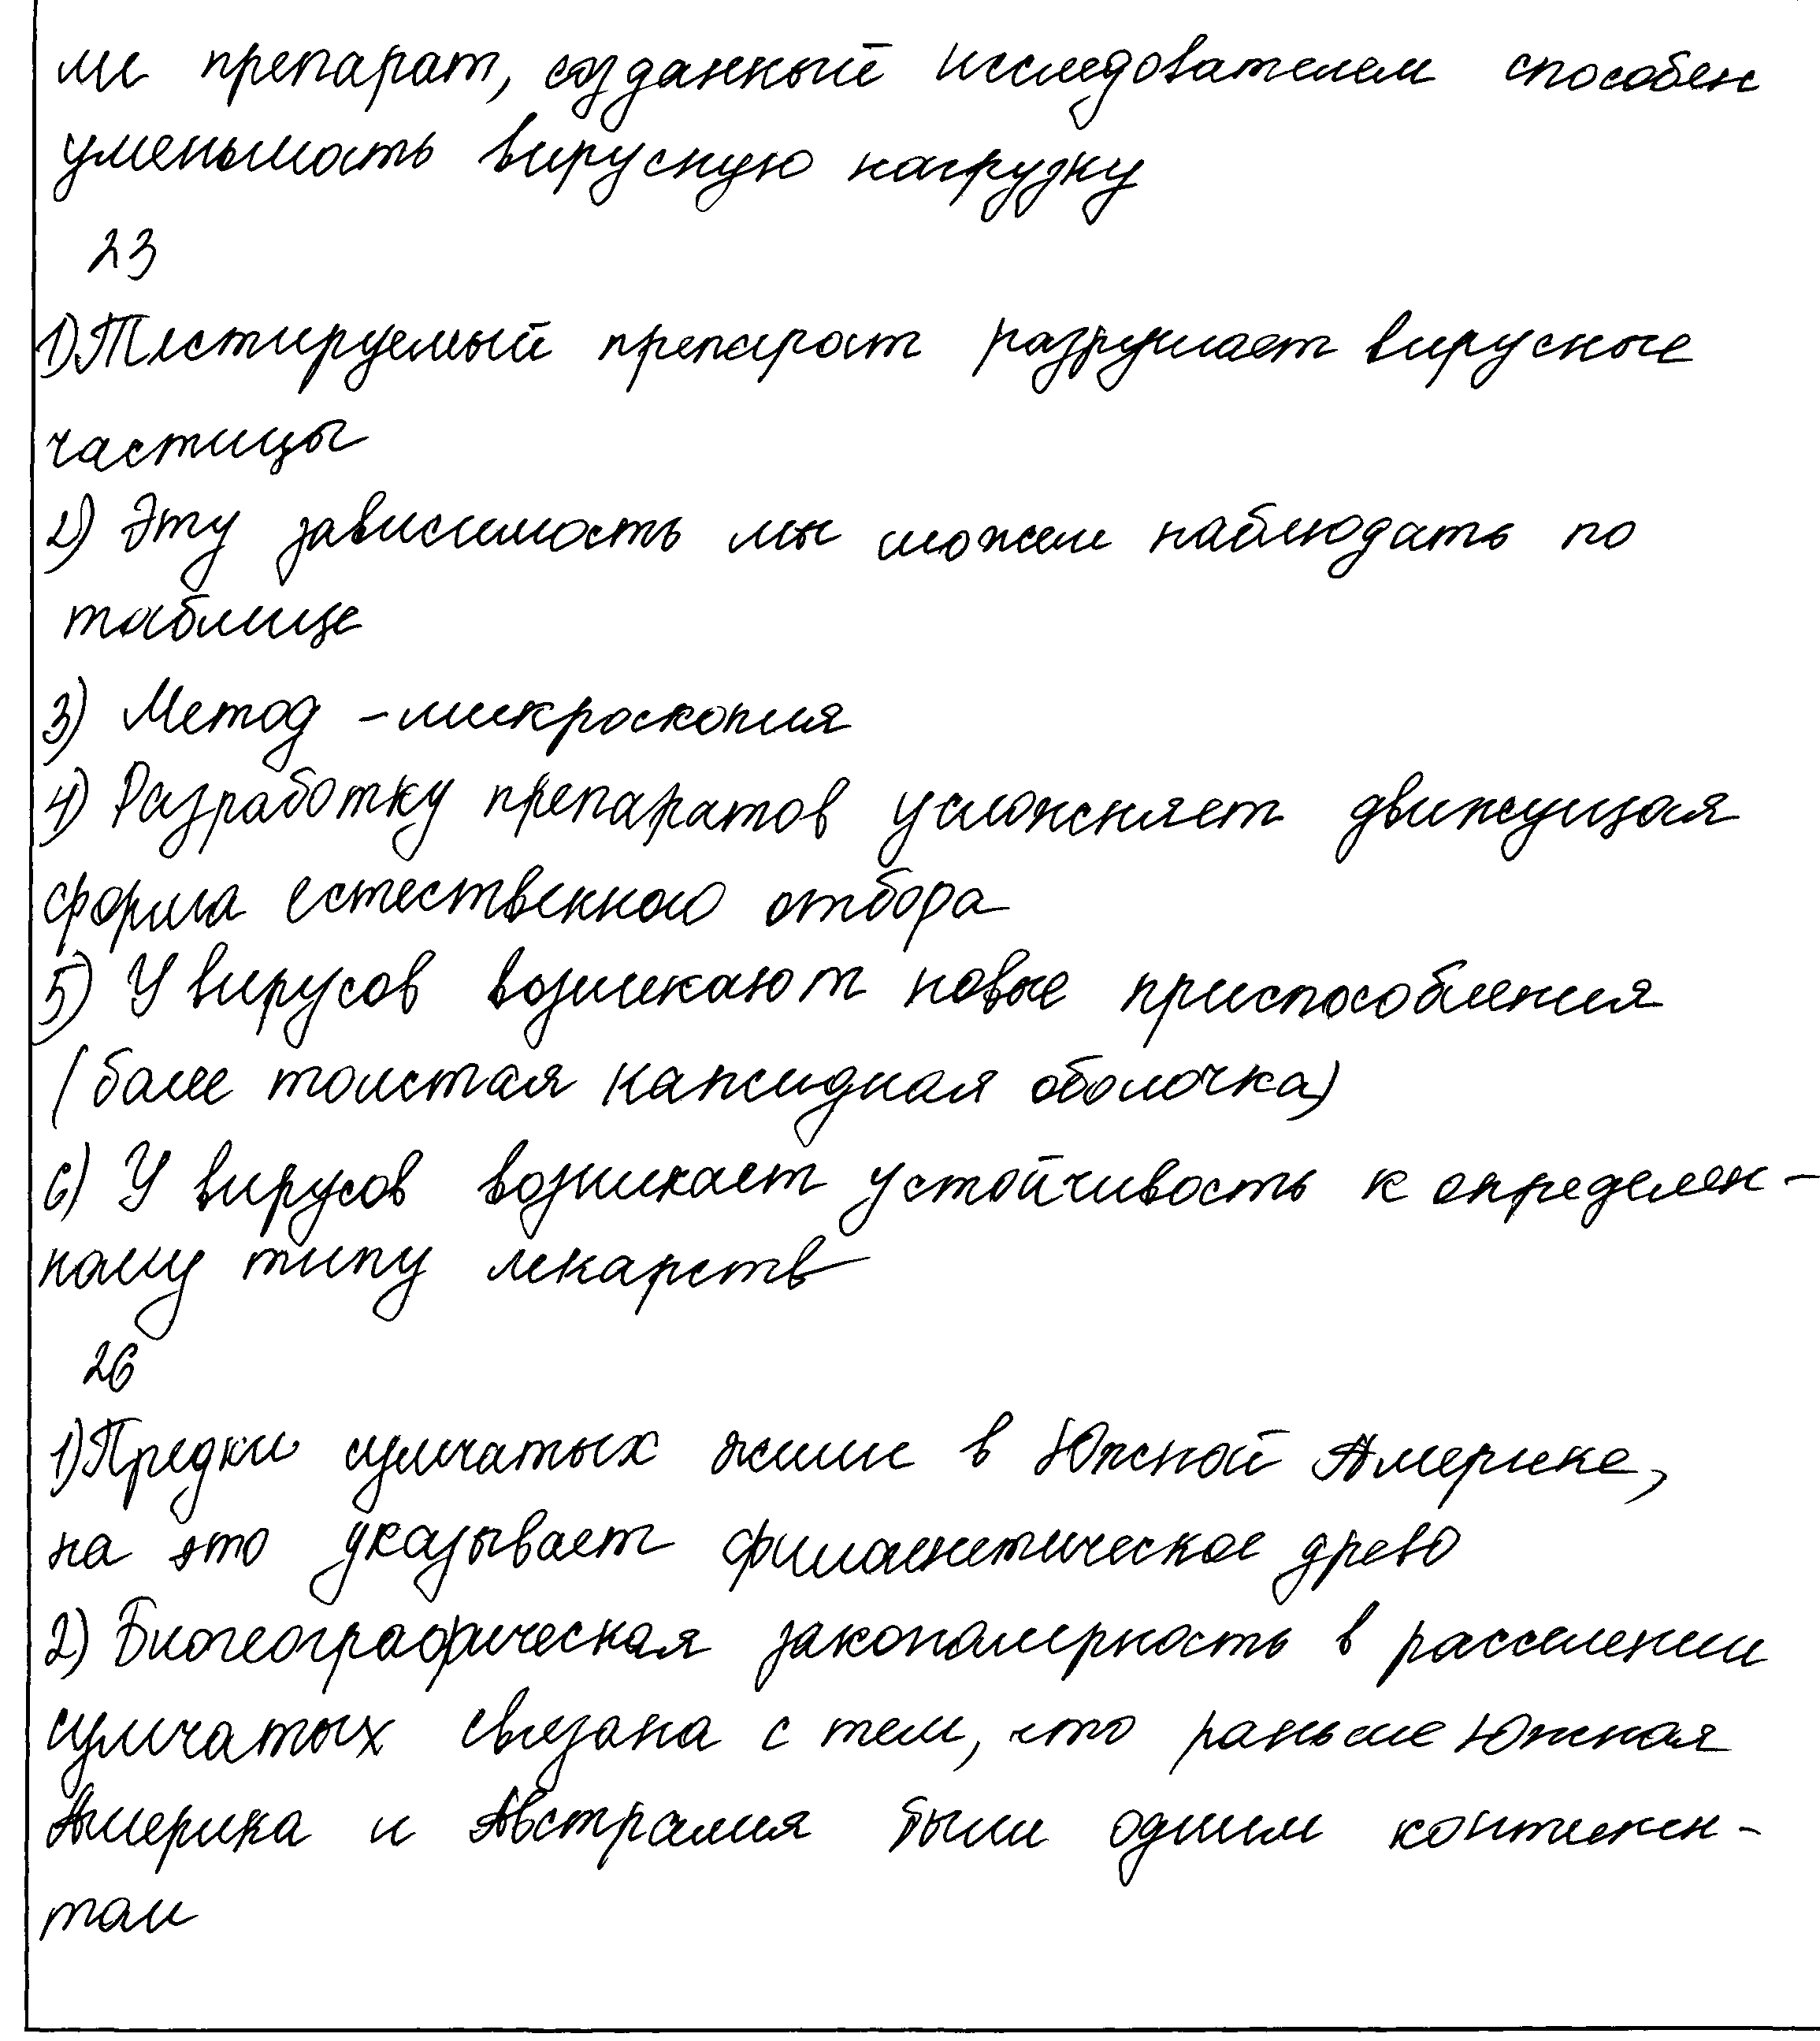 ли препарат, созданный исследователем способен
уменьшать вирусную нагрузку
23
1) Тестируемый препарат разрушает вирусные
частицы
2) Эту зависимость мы можем наблюдать по
таблице
3) Метод - микроскопия
4) Разработку препаратов усложняет движущая
форма естественного отбора
5) У вирусов возникают новые приспособления
(более толстая капсидная оболочка)
6) У вирусов возникает устойчивость к определен-
ному типу лекарств
26
1) Предки сумчатых жили в Южной Америке,
на это указывает филогенетическое древо
2) Биогеографическая закономерность в расселении
сумчатых связана с тем, что раньше Южная
Америка и Австралия были одним континен-
том